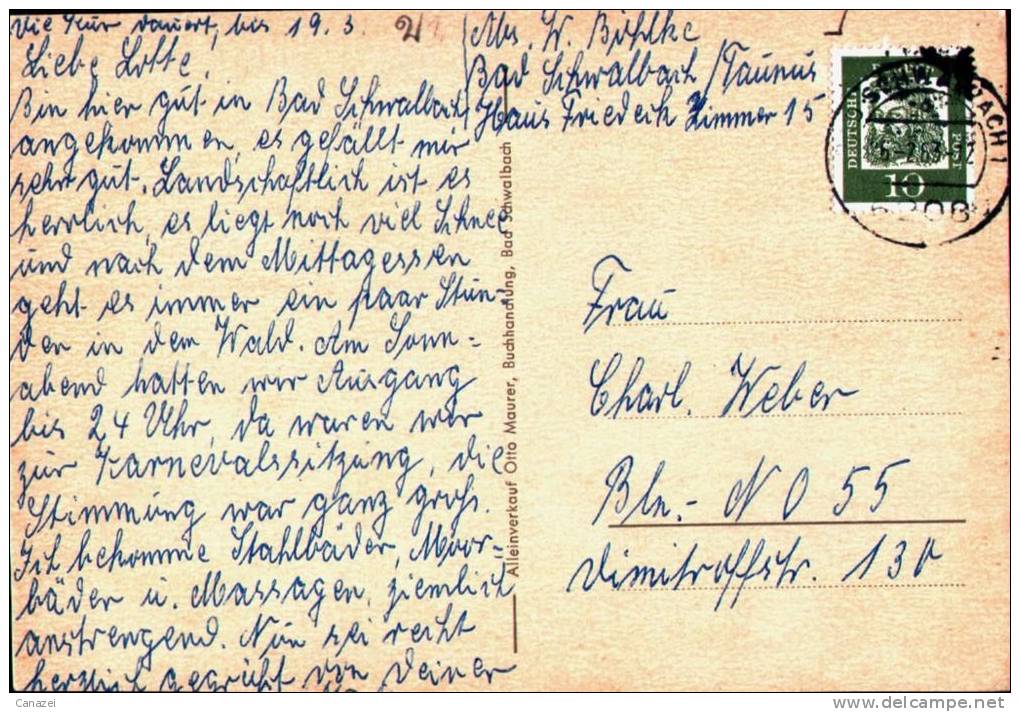 Die Kur dauert, bis 19.3.
Liebe Lotte,
Bin hier gut in Bad Schwalbach
angekommen, es gefällt mir
sehr gut. Landschaftlich ist es
herrlich, es liegt noch viel Schnee
und nach dem Mittagessen
geht es immer ein paar Stun-
den in den Wald. Am Sonn-
abend hatten wir Ausgang
bis 24 Uhr, da waren wir
zur Karnevalssitzung, die
Stimmung war ganz groß.
Ich bekomme Stahlbäder, Moor-
bäder u. Massagen, ziemlich
anstrengend. Nun sei recht
herzlich gegrüßt von Deiner
Abs. W. Böhlke
Bad Schwalbach/Taunus
Haus Frieda Zimmer 15
Alleinverkauf Otto Maurer, Buchhandlung, Bad Schwalbach
DEUTSCHE
POST
10
6208
Frau
Charl. Weber
Bln.- N O 55
Dimitroffstr. 130
Canazei
www.delcampe.net